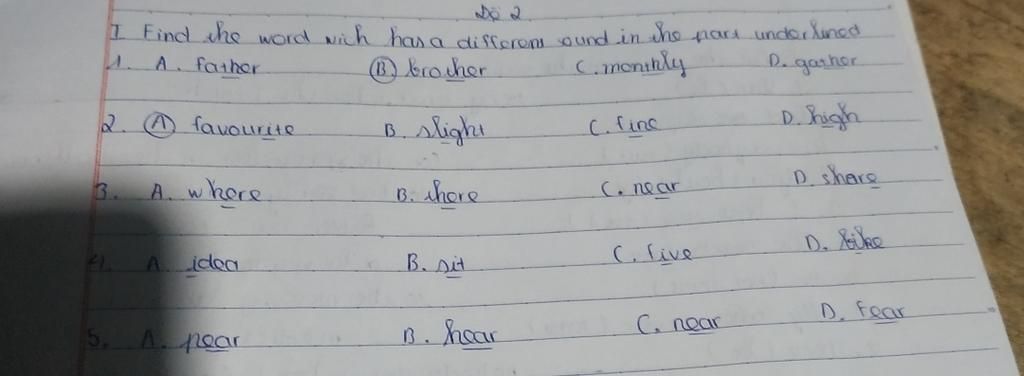 Đề 2
I Find the word wich has a differens ound in the part underlined
1. A. father B brother C. monthly D. gather
2. A favourite B. slight C. fine D. high
3. A. where B. there C. near D. share
4. A. idea B. sit C. five D. like
5. A. pear B. hear C. near D. fear